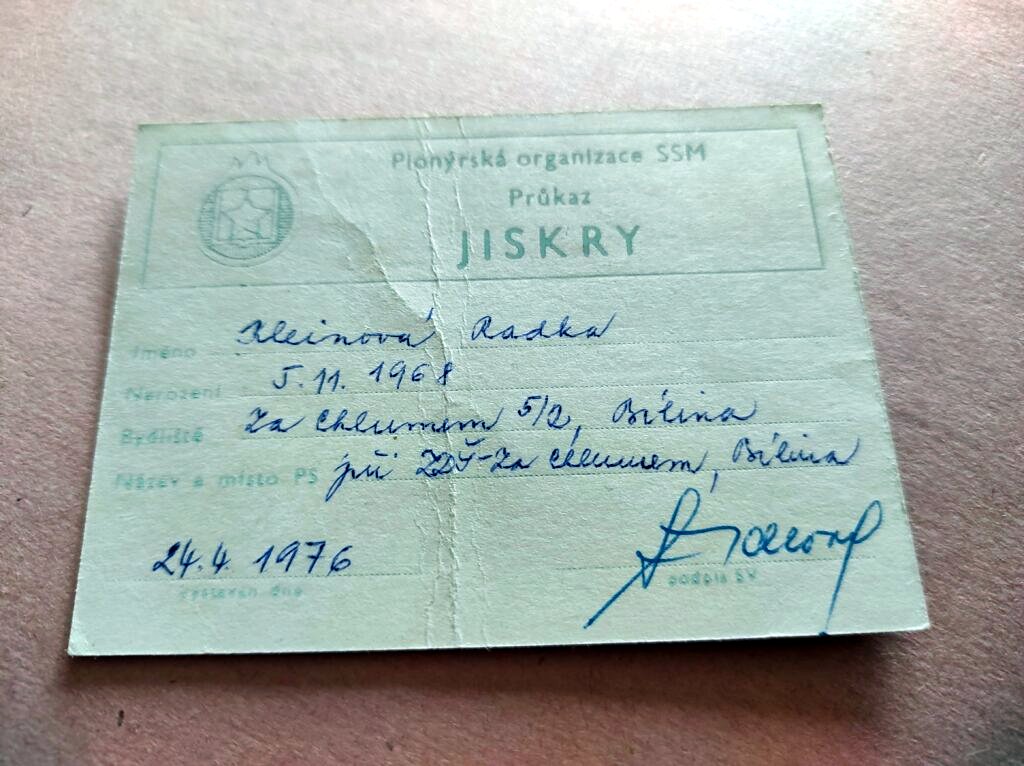 Pionýrská organizace SSM
Průkaz
JISKRY
Jméno Kleinová Radka
Narození 5. 11. 1968
Bydliště Za Chlumem 5/2, Bílina
Název a místo PS při ZDŠ-Za Chlumem, Bílina
24. 4. 1976
vystaven dne
podpis SV